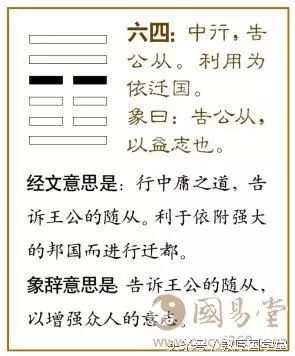 六四：中行，告
公从。利用为
依迁国。
象曰：告公从，
以益志也。
经文意思是：行中庸之道，告
诉王公的随从。利于依附强大
的邦国而进行迁都。
象辞意思是 告诉王公的随从，
以增强众人的意志。
國易堂